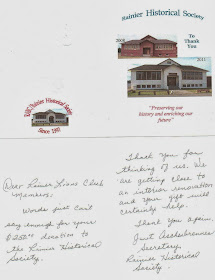 Rainier Historical Society
2008
To
Thank
You
2011
"Preserving our
history and enriching our
future"
Rainier Historical Society
Since
Dear Rainier Lions Club
Members,
Words just can't
say enough for your
$250.00 donation to
the Rainier Historical
Society.
Thank you for
thinking of us. We
are getting close to
an interior renovation
and your gift will
certainly help.
Thank you again,
Secretary,
Rainier Historical
Society.